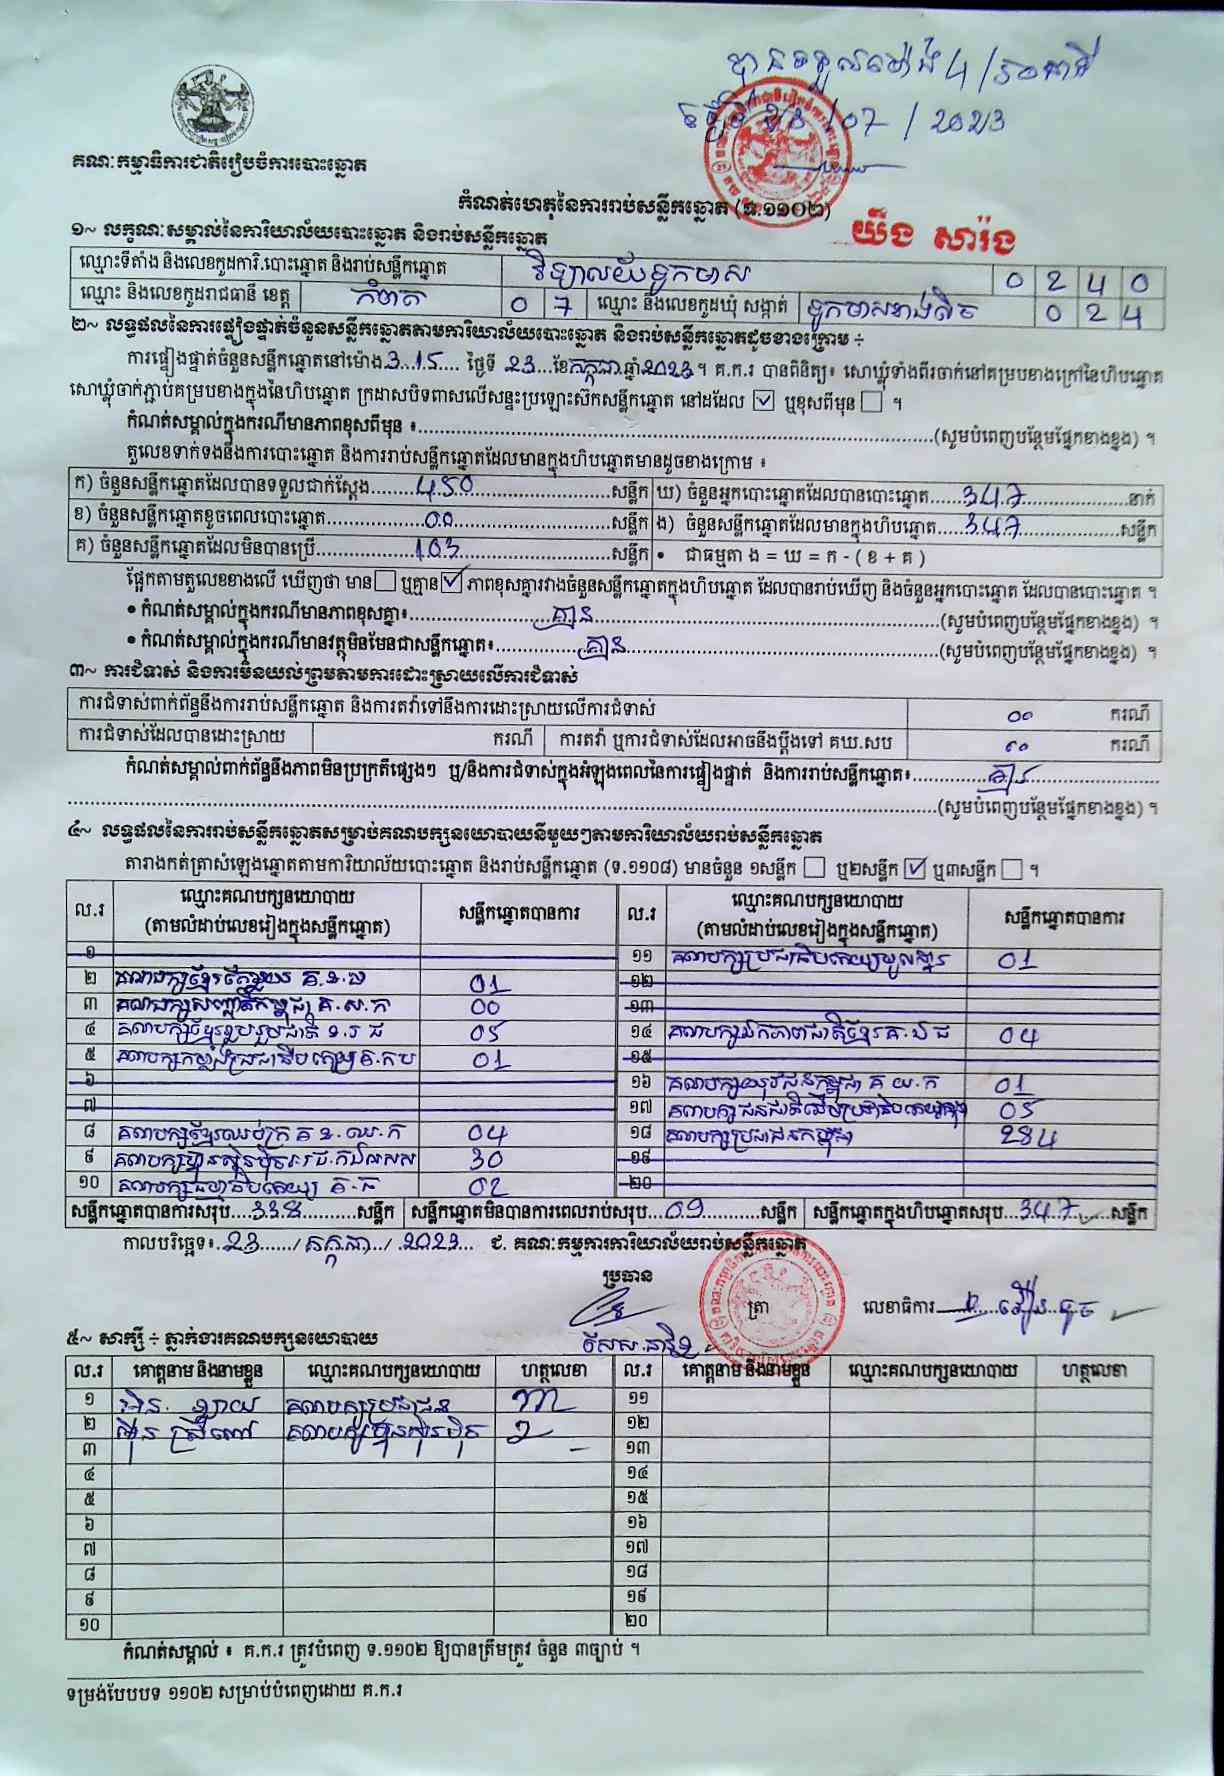 បានទទួលម៉ោង 4/50នាទី
ថ្ងៃទី 23/07/2023
គណៈកម្មាធិការជាតិរៀបចំការបោះឆ្នោត
កំណត់ហេតុនៃការរាប់សន្លឹកឆ្នោត (ទ.១១០២)
យ៉ង សារ៉ង
១~ លក្ខណៈសម្គាល់នៃការិយាល័យបោះឆ្នោត និងរាប់សន្លឹកឆ្នោត
ឈ្មោះទីតាំង និងលេខកូដការិ.បោះឆ្នោត និងរាប់សន្លឹកឆ្នោត វិទ្យាល័យទូកមាស 0 2 4 0
ឈ្មោះ និងលេខកូដរាជធានី ខេត្ត កំពត 0 7 ឈ្មោះ និងលេខកូដឃុំ សង្កាត់ ទូកមាសខាងលិច 0 2 4
២~ លទ្ធផលនៃការផ្ទៀងផ្ទាត់ចំនួនសន្លឹកឆ្នោតតាមការិយាល័យបោះឆ្នោត និងរាប់សន្លឹកឆ្នោតដូចខាងក្រោម ÷
ការផ្ទៀងផ្ទាត់ចំនួនសន្លឹកឆ្នោតនៅម៉ោង.3.15.... ថ្ងៃទី 23...ខែកក្កដា.ឆ្នាំ2023។ គ.ក.រ បានពិនិត្យ៖ សោឃ្លុំទាំងពីរចាក់នៅគម្របខាងក្រៅនៃហិបឆ្នោត
សោឃ្លុំចាក់ភ្ជាប់គម្របខាងក្នុងនៃហិបឆ្នោត ក្រដាសបិទពាសលើសន្ទះប្រឡោះស៊កសន្លឹកឆ្នោត នៅដដែល ☑ ឬខុសពីមុន ☐ ។
កំណត់សម្គាល់ក្នុងករណីមានភាពខុសពីមុន ៖..........(សូមបំពេញបន្ថែមផ្នែកខាងខ្នង) ។
តួលេខទាក់ទងនឹងការបោះឆ្នោត និងការរាប់សន្លឹកឆ្នោតដែលមានក្នុងហិបឆ្នោតមានដូចខាងក្រោម ៖
ក) ចំនួនសន្លឹកឆ្នោតដែលបានទទួលជាក់ស្តែង........450..........សន្លឹក ឃ) ចំនួនអ្នកបោះឆ្នោតដែលបានបោះឆ្នោត......347..........នាក់
ខ) ចំនួនសន្លឹកឆ្នោតខូចពេលបោះឆ្នោត..........00..........សន្លឹក ង) ចំនួនសន្លឹកឆ្នោតដែលមានក្នុងហិបឆ្នោត.....347..........សន្លឹក
គ) ចំនួនសន្លឹកឆ្នោតដែលមិនបានប្រើ..........103..........សន្លឹក • ជាធម្មតា ង = ឃ = ក - ( ខ + គ )
ផ្អែកតាមតួលេខខាងលើ ឃើញថា មាន ☐ ឬគ្មាន ☑ ភាពខុសគ្នារវាងចំនួនសន្លឹកឆ្នោតក្នុងហិបឆ្នោត ដែលបានរាប់ឃើញ និងចំនួនអ្នកបោះឆ្នោត ដែលបានបោះឆ្នោត ។
• កំណត់សម្គាល់ក្នុងករណីមានភាពខុសគ្នា៖..........គ្មាន..........(សូមបំពេញបន្ថែមផ្នែកខាងខ្នង) ។
• កំណត់សម្គាល់ក្នុងករណីមានវត្ថុមិនមែនជាសន្លឹកឆ្នោត៖..........គ្មាន..........(សូមបំពេញបន្ថែមផ្នែកខាងខ្នង) ។
៣~ ការជំទាស់ និងការមិនយល់ព្រមតាមការដោះស្រាយលើការជំទាស់
ការជំទាស់ពាក់ព័ន្ធនឹងការរាប់សន្លឹកឆ្នោត និងការតវ៉ាទៅនឹងការដោះស្រាយលើការជំទាស់ 00 ករណី
ការជំទាស់ដែលបានដោះស្រាយ ករណី ការតវ៉ា ឬការជំទាស់ដែលអាចនឹងប្តឹងទៅ គឃ.សប 00 ករណី
កំណត់សម្គាល់ពាក់ព័ន្ធនឹងភាពមិនប្រក្រតីផ្សេងៗ ឬ/និងការជំទាស់ក្នុងអំឡុងពេលនៃការផ្ទៀងផ្ទាត់ និងការរាប់សន្លឹកឆ្នោត៖..........គ្មាន..........
..........(សូមបំពេញបន្ថែមផ្នែកខាងខ្នង) ។
៤~ លទ្ធផលនៃការរាប់សន្លឹកឆ្នោតសម្រាប់គណបក្សនយោបាយនីមួយៗតាមការិយាល័យរាប់សន្លឹកឆ្នោត
តារាងកត់ត្រាសំឡេងឆ្នោតតាមការិយាល័យបោះឆ្នោត និងរាប់សន្លឹកឆ្នោត (ទ.១១០៨) មានចំនួន ១សន្លឹក ☐ ឬ២សន្លឹក ☑ ឬ៣សន្លឹក ☐ ។
ល.រ ឈ្មោះគណបក្សនយោបាយ (តាមលំដាប់លេខរៀងក្នុងសន្លឹកឆ្នោត) សន្លឹកឆ្នោតបានការ ល.រ ឈ្មោះគណបក្សនយោបាយ (តាមលំដាប់លេខរៀងក្នុងសន្លឹកឆ្នោត) សន្លឹកឆ្នោតបានការ
១ ១១ គណបក្សប្រជាធិបតេយ្យមូលដ្ឋាន 01
២ គណបក្សខ្មែរតែមួយ គ.ខ.ម 01 ១២
៣ គណបក្សសញ្ជាតិកម្ពុជា គ.ស.ក 00 ១៣
៤ គណបក្សខ្មែររួបរួមជាតិ ខ.រ.ជ 05 ១៤ គណបក្សឯកភាពជាតិខ្មែរ គ.ឯ.ជ 04
៥ គណបក្សកម្លាំងប្រជាធិបតេយ្យ គ.កប 01 ១៥
៦ ១៦ គណបក្សយុវជនកម្ពុជា គ យ.ក 01
៧ ១៧ គណបក្សជនជាតិដើមប្រជាធិបតេយ្យកម្ពុជា 05
៨ គណបក្សខ្មែរឈប់ក្រ គ ខ.ឈ.ក 04 ១៨ គណបក្សប្រជាជនកម្ពុជា 284
៩ គណបក្សហ្វ៊ុនស៊ិនប៉ិច 30 ១៩
១០ គណបក្សធម្មាធិបតេយ្យ គ.ធ 02 ២០
សន្លឹកឆ្នោតបានការសរុប....338..........សន្លឹក សន្លឹកឆ្នោតមិនបានការពេលរាប់សរុប...09..........សន្លឹក សន្លឹកឆ្នោតក្នុងហិបឆ្នោតសរុប...347......សន្លឹក
កាលបរិច្ឆេទ៖.23....../កក្កដា../.2023... ជ. គណៈកម្មការការិយាល័យរាប់សន្លឹកឆ្នោត
ប្រធាន ត្រា លេខាធិការ
៥~ សាក្សី ÷ ភ្នាក់ងារគណបក្សនយោបាយ
ល.រ គោត្តនាម និងនាមខ្លួន ឈ្មោះគណបក្សនយោបាយ ហត្ថលេខា ល.រ គោត្តនាម និងនាមខ្លួន ឈ្មោះគណបក្សនយោបាយ ហត្ថលេខា
១ គណបក្សប្រជាជន ១១
២ គណបក្សហ្វ៊ុនស៊ិនប៉ិច ១២
៣ ១៣
៤ ១៤
៥ ១៥
៦ ១៦
៧ ១៧
៨ ១៨
៩ ១៩
១០ ២០
កំណត់សម្គាល់ ៖ គ.ក.រ ត្រូវបំពេញ ទ.១១០២ ឱ្យបានត្រឹមត្រូវ ចំនួន ៣ច្បាប់ ។
ទម្រង់បែបបទ ១១០២ សម្រាប់បំពេញដោយ គ.ក.រ